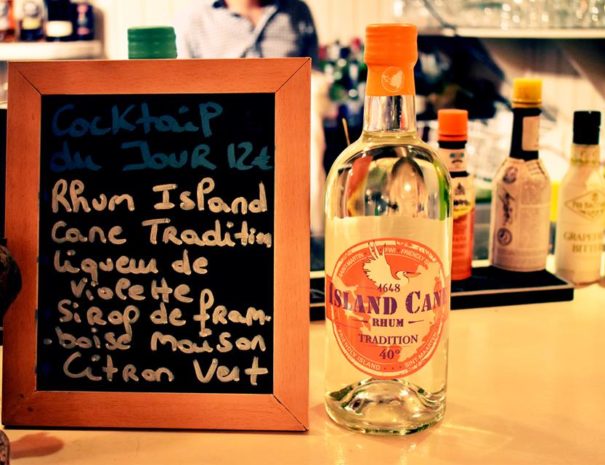 Cocktail
du Jour 12€
Rhum Island
Cane Tradition
liqueur de
violette
sirop de fram-
boise maison
Citron Vert
1648
ISLAND CANE
RHUM
TRADITION
40°
GRAPEFRUIT
BITTERS